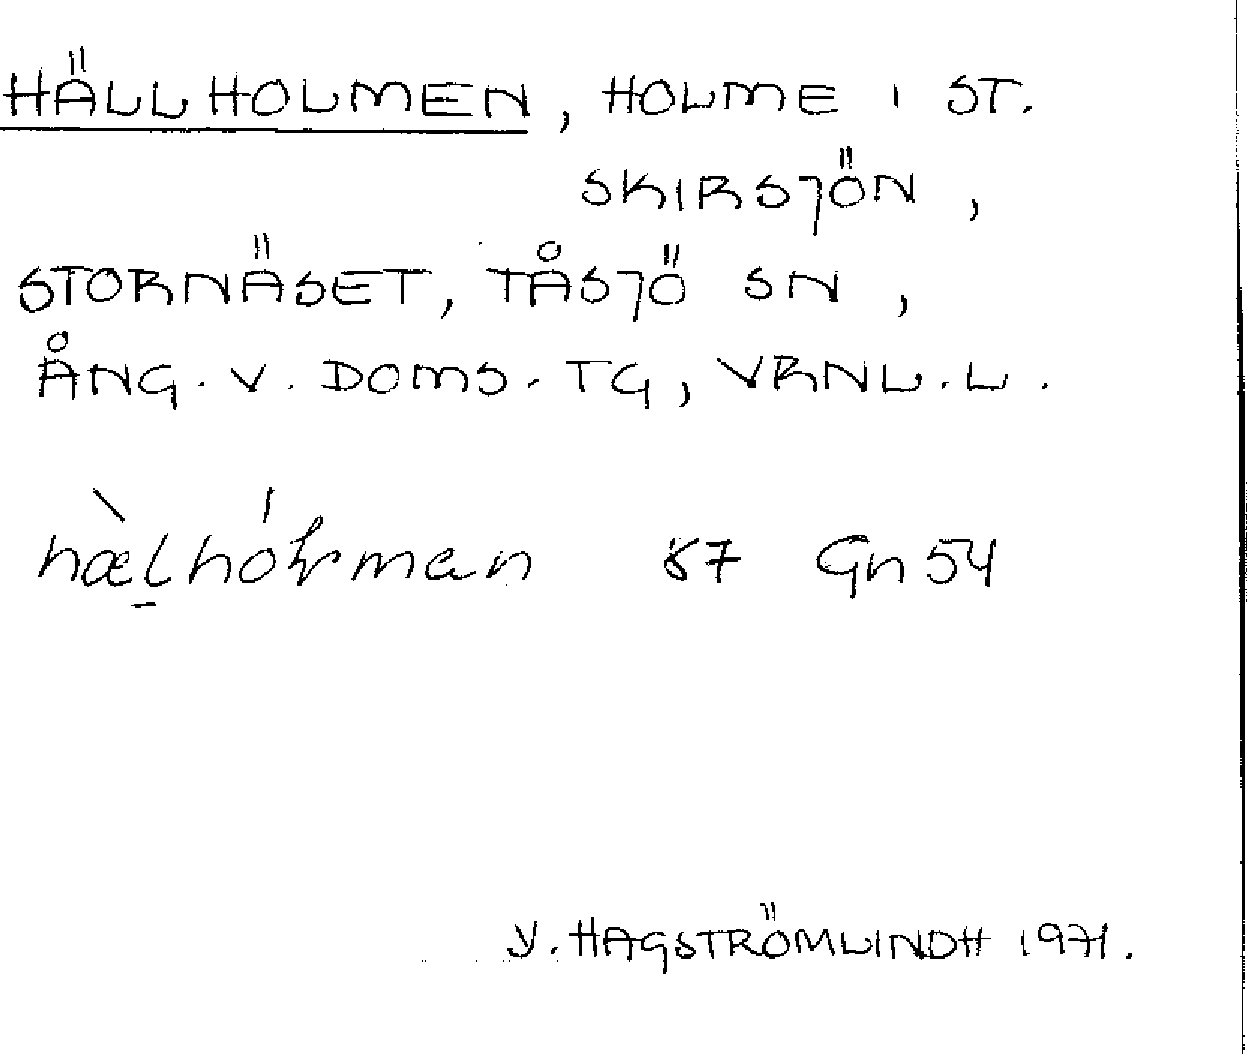 HÄLLHOLMEN, HOLME I ST.
SKIRSJÖN,
STORNÄSET, TÅSJÖ SN,
ÅNG. V. DOMS. TG, VRNL. L.
hæ̀lhóɫman 87 Gn 54
Y. HAGSTRÖMLINDH 1971.